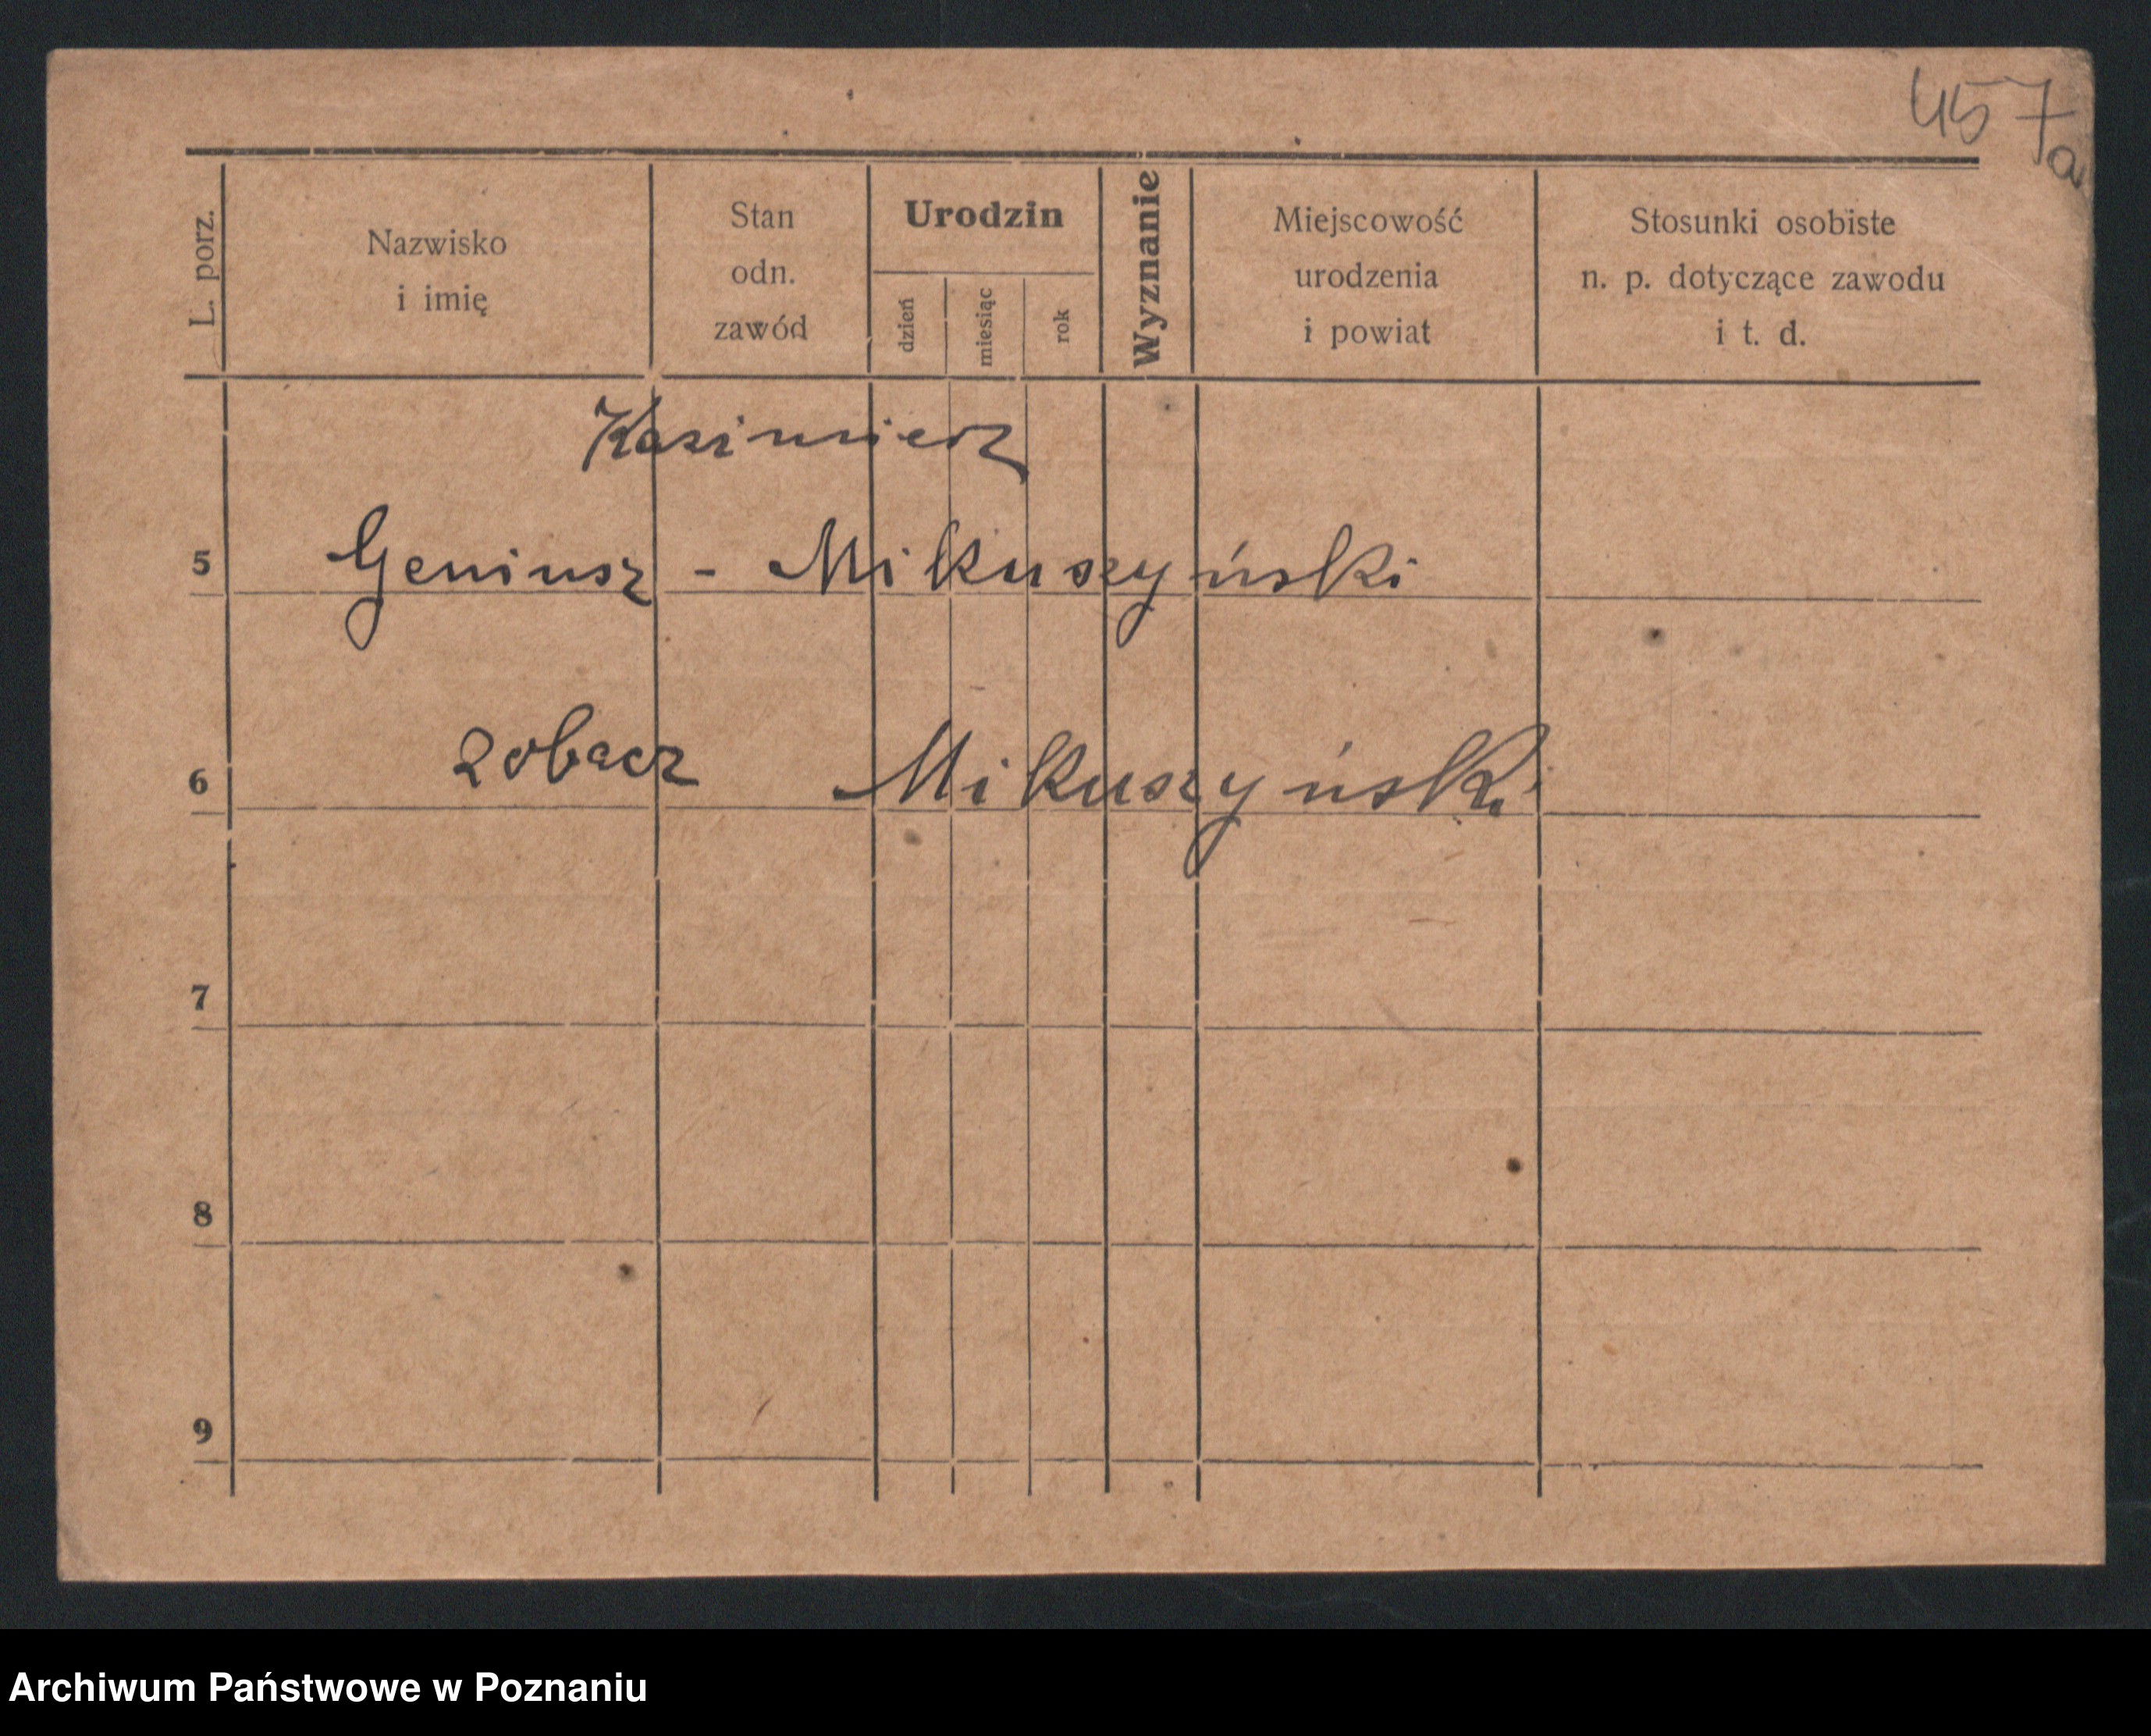 457a
L. porz.
Nazwisko
i imię
Stan
odn.
zawód
Urodzin
dzień
miesiąc
rok
Wyznanie
Miejscowość
urodzenia
i powiat
Stosunki osobiste
n. p. dotyczące zawodu
i t. d.
Kazimierz
5 Geniusz - Mikuszyński
6 zobacz Mikuszyński
7
8
9
Archiwum Państwowe w Poznaniu